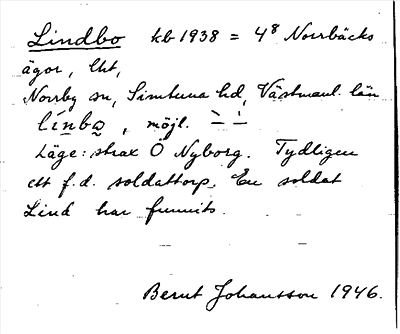 Lindbo kb 1938 = 4⁸ Norrbäcks
ägor, lht,
Norrby sn, Simtuna hd, Västmanl. län
línbo̤, möjl. \_ /_
Läge: strax Ö Nyborg. Tydligen
ett f.d. soldattorp. En soldat
Lind har funnits.
Bernt Johansson 1946.